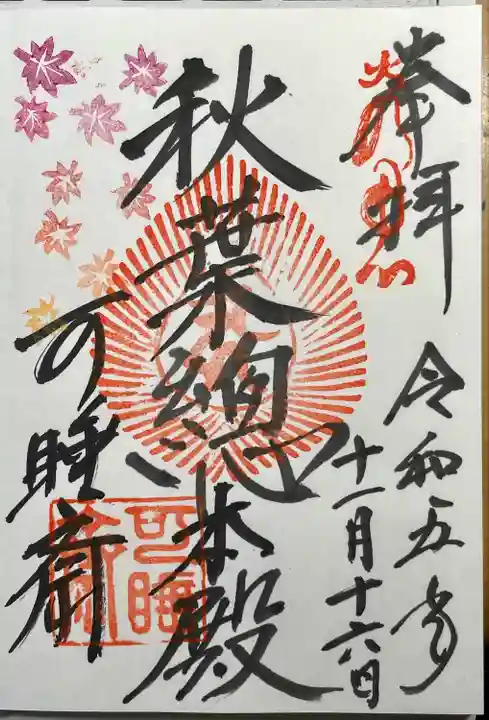 奉拝
令和五年
十一月十六日
秋葉總本殿
可睡斎
可睡斎